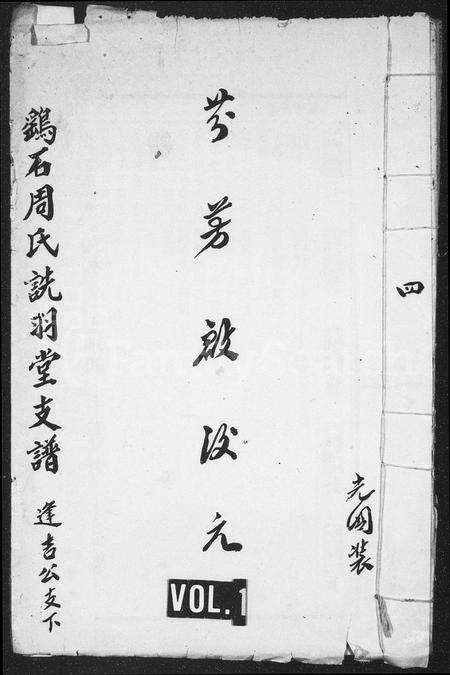 四
光國裝
芬芳啟後元
鷄石周氏詵羽堂支譜 逢吉公支下
VOL. 1